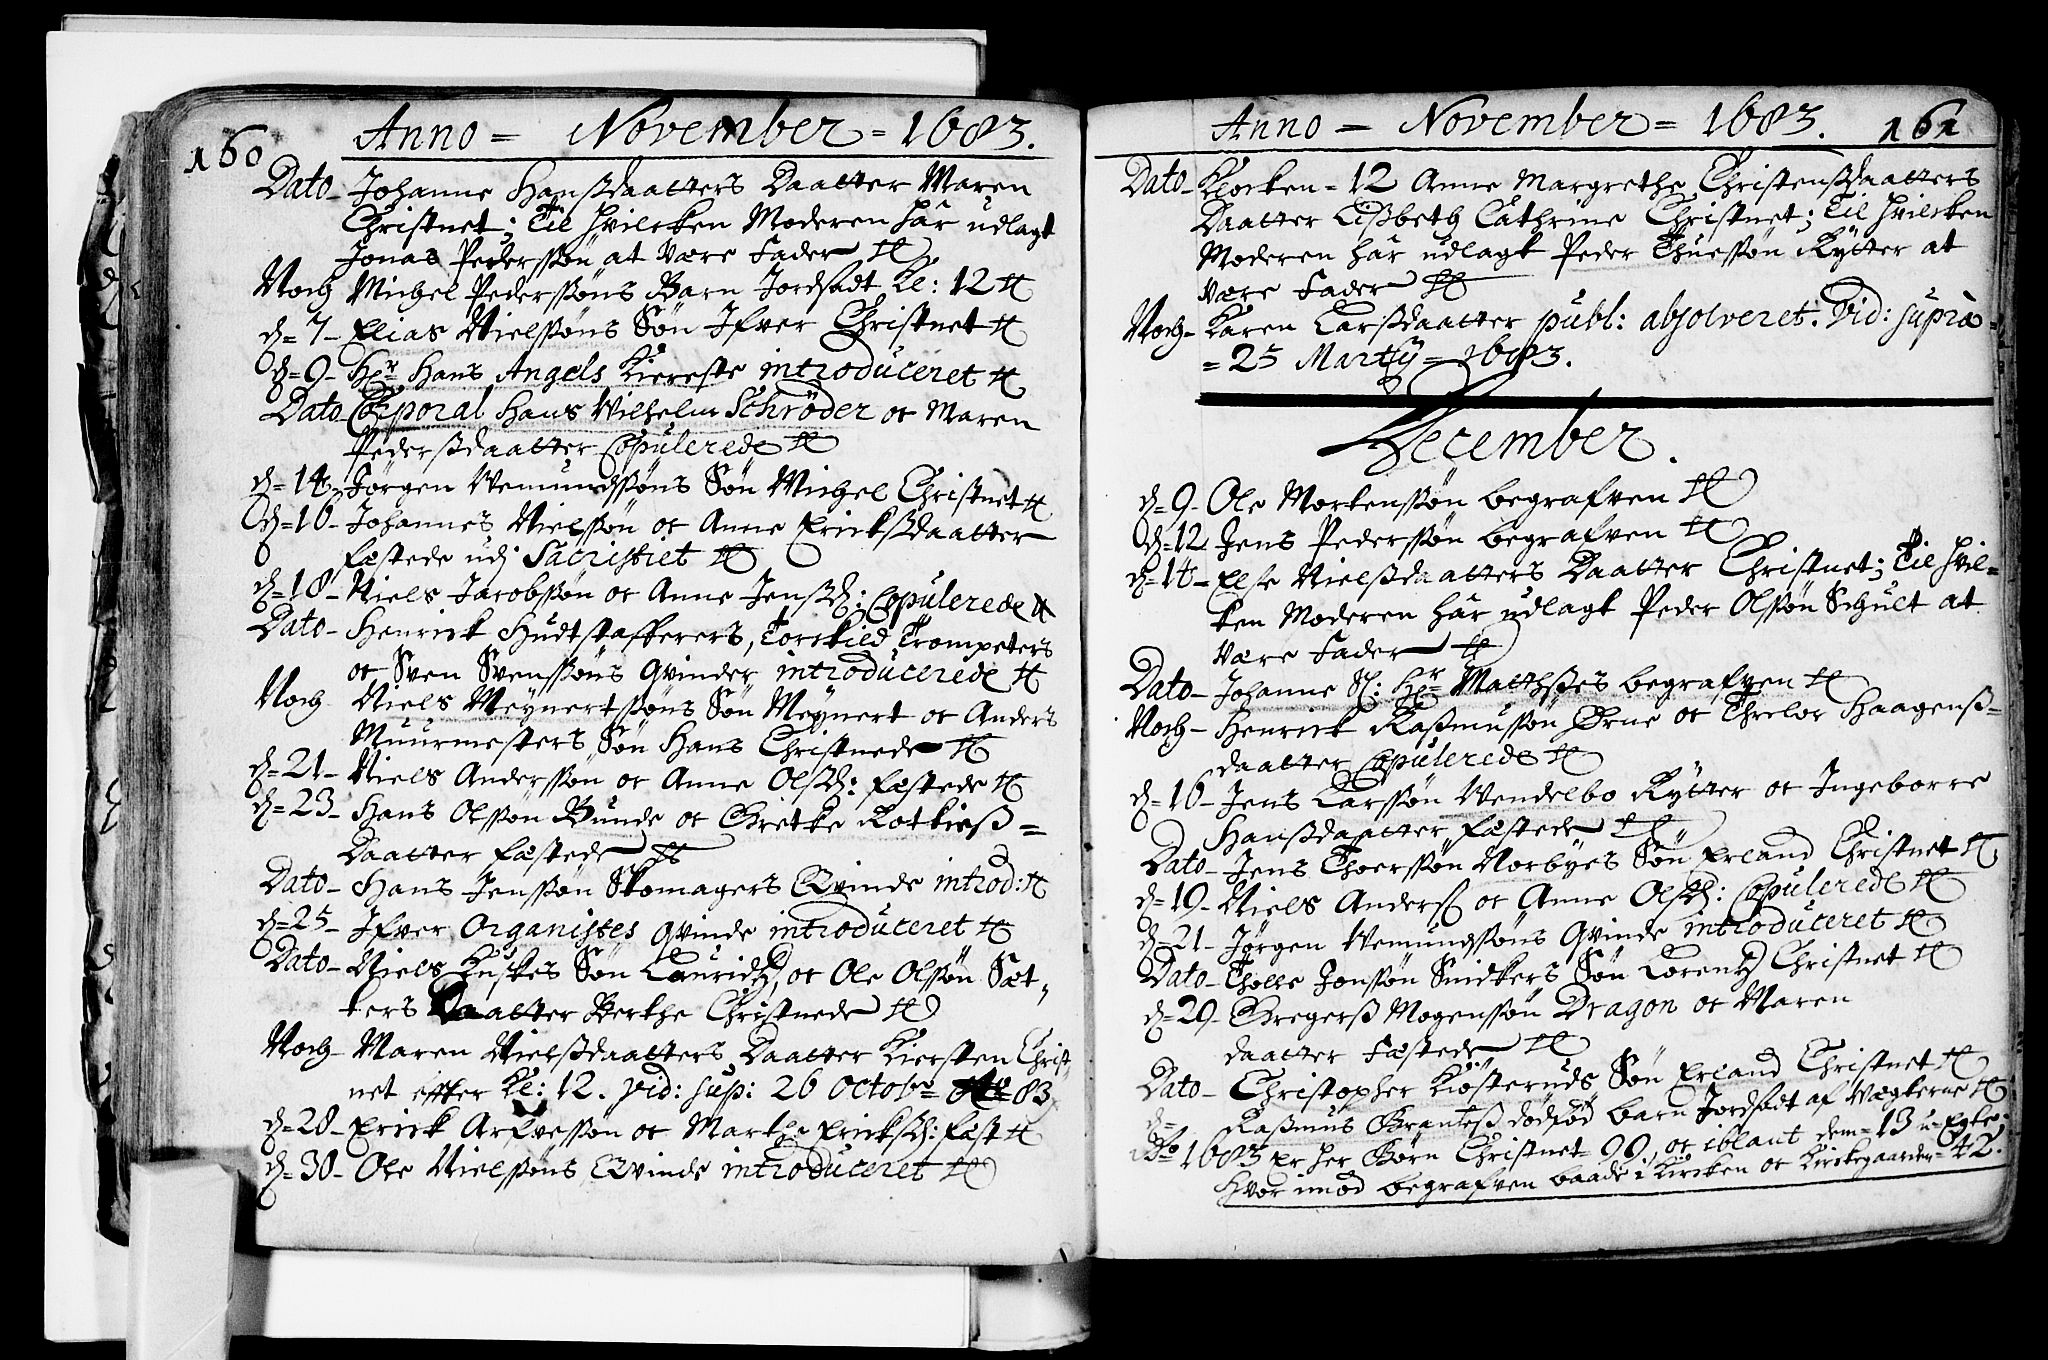 160
Anno = November = 1683.
Dato Johanne Hanßdaatters Daatter Maren
Christnet; Til hvilcken Moderen har udlagt
Jonas Pederssøn at være Fader
Noch Michel Pederssøns Barn Jordfæst Kl: 12
d= 7 - Elias Nielssøns Søn Ifver Christnet
d= 9 - Hr Hans Angels Kiereste introduceret
Dato Corporal Hans Vilhelm Schrøder oc Maren
Pedersdaatter Copulerede
d= 14 - Jørgen Vemundssøns Søn Michel Christnet
d= 16 - Johannes Nielssøn oc Anne Ericksdaatter
fæstede udj Sacristiet
d= 18 - Niels Jacobssøn oc Anne Jensd: Copulerede
Dato - Henrick Hudtstafferers, Torckild Trompeters
oc Sven Svenssøns Qvinder introducerede
Noch Niels Meynertssøns Søn Meynert oc Anders
Muurmesters Søn Hans Christnede
d= 21 - Niels Anderssøn oc Anne Olsd: fæstede
d= 23 - Hans Olssøn Bunde oc Gretke
Daatter fæstede
Dato - Hans Jenssøn Skomagers Qvinde introd:
d= 25 - Ifver Organistes Qvinde introduceret
Dato - Niels Kuskes Søn Lauridz, oc Ole Olssøn Sæt-
ters Daatter Berthe Christnede
Noch - Maren Nielßdaatters Daatter Kiersten Christ-
net effter Kl: 12. vid: sup: 26 Octobr 83
d= 28 - Erick Arfvessøn oc Marthe Ericksd: fæst
d= 30 - Ole Nielssøns Qvinde introduceret
Anno = November = 1683. 161
Dato - Klocken = 12 Anne Margrethe Christenßdaatters
Daatter Lißbeth Cathrine Christnet; Til hvilcken
Moderen har udlagt Peder Thuessøn Rytter at
være Fader
Noch - Karen Larßdaatter publ: absolveret. Vid: suprà =
= 25 Martij = 1683.
December.
d= 9 - Ole Mortenssøn begrafven
d= 12 Jens Pederssøn begrafven
d= 14 - Else Nielßdaatters Daatter Christnet; Til hvil-
ken Moderen har udlagt Peder Olssøn Schult at
være Fader
Dato - Johanne Sl: Hr Matthses begrafven
Noch - Henrick Raßmussøn Ørne oc Haagenß-
daatter Copulerede
d= 16 - Jens Larssøn Vendelbo Rytter oc Ingeborre
Hanßdaatter fæstede
Dato - Jens Thoerssøn Norbyes Søn Erland Christnet
d= 19 - Niels Anders oc Anne Olsd: Copulerede
d= 21 - Jørgen Vemungssøns Qvinde introduceret
Dato - Tholle Jonssøn Snidkers Søn Lorentz Christnet
d= 29 - Gregerß Mogenssøn Dragon oc Maren
daatter Fæstede
Dato - Christopher Kiøsteruds Søn Erland Christnet
d= Raßmus Granteß dødfød barn Jordfæst af Vægterne
Ao 1683 er her Børn Christnet = 99, oc iblant dem = 13 u-Egte;
Hvor imod begrafven baade i Kircken oc Kirckegaarden = 42.